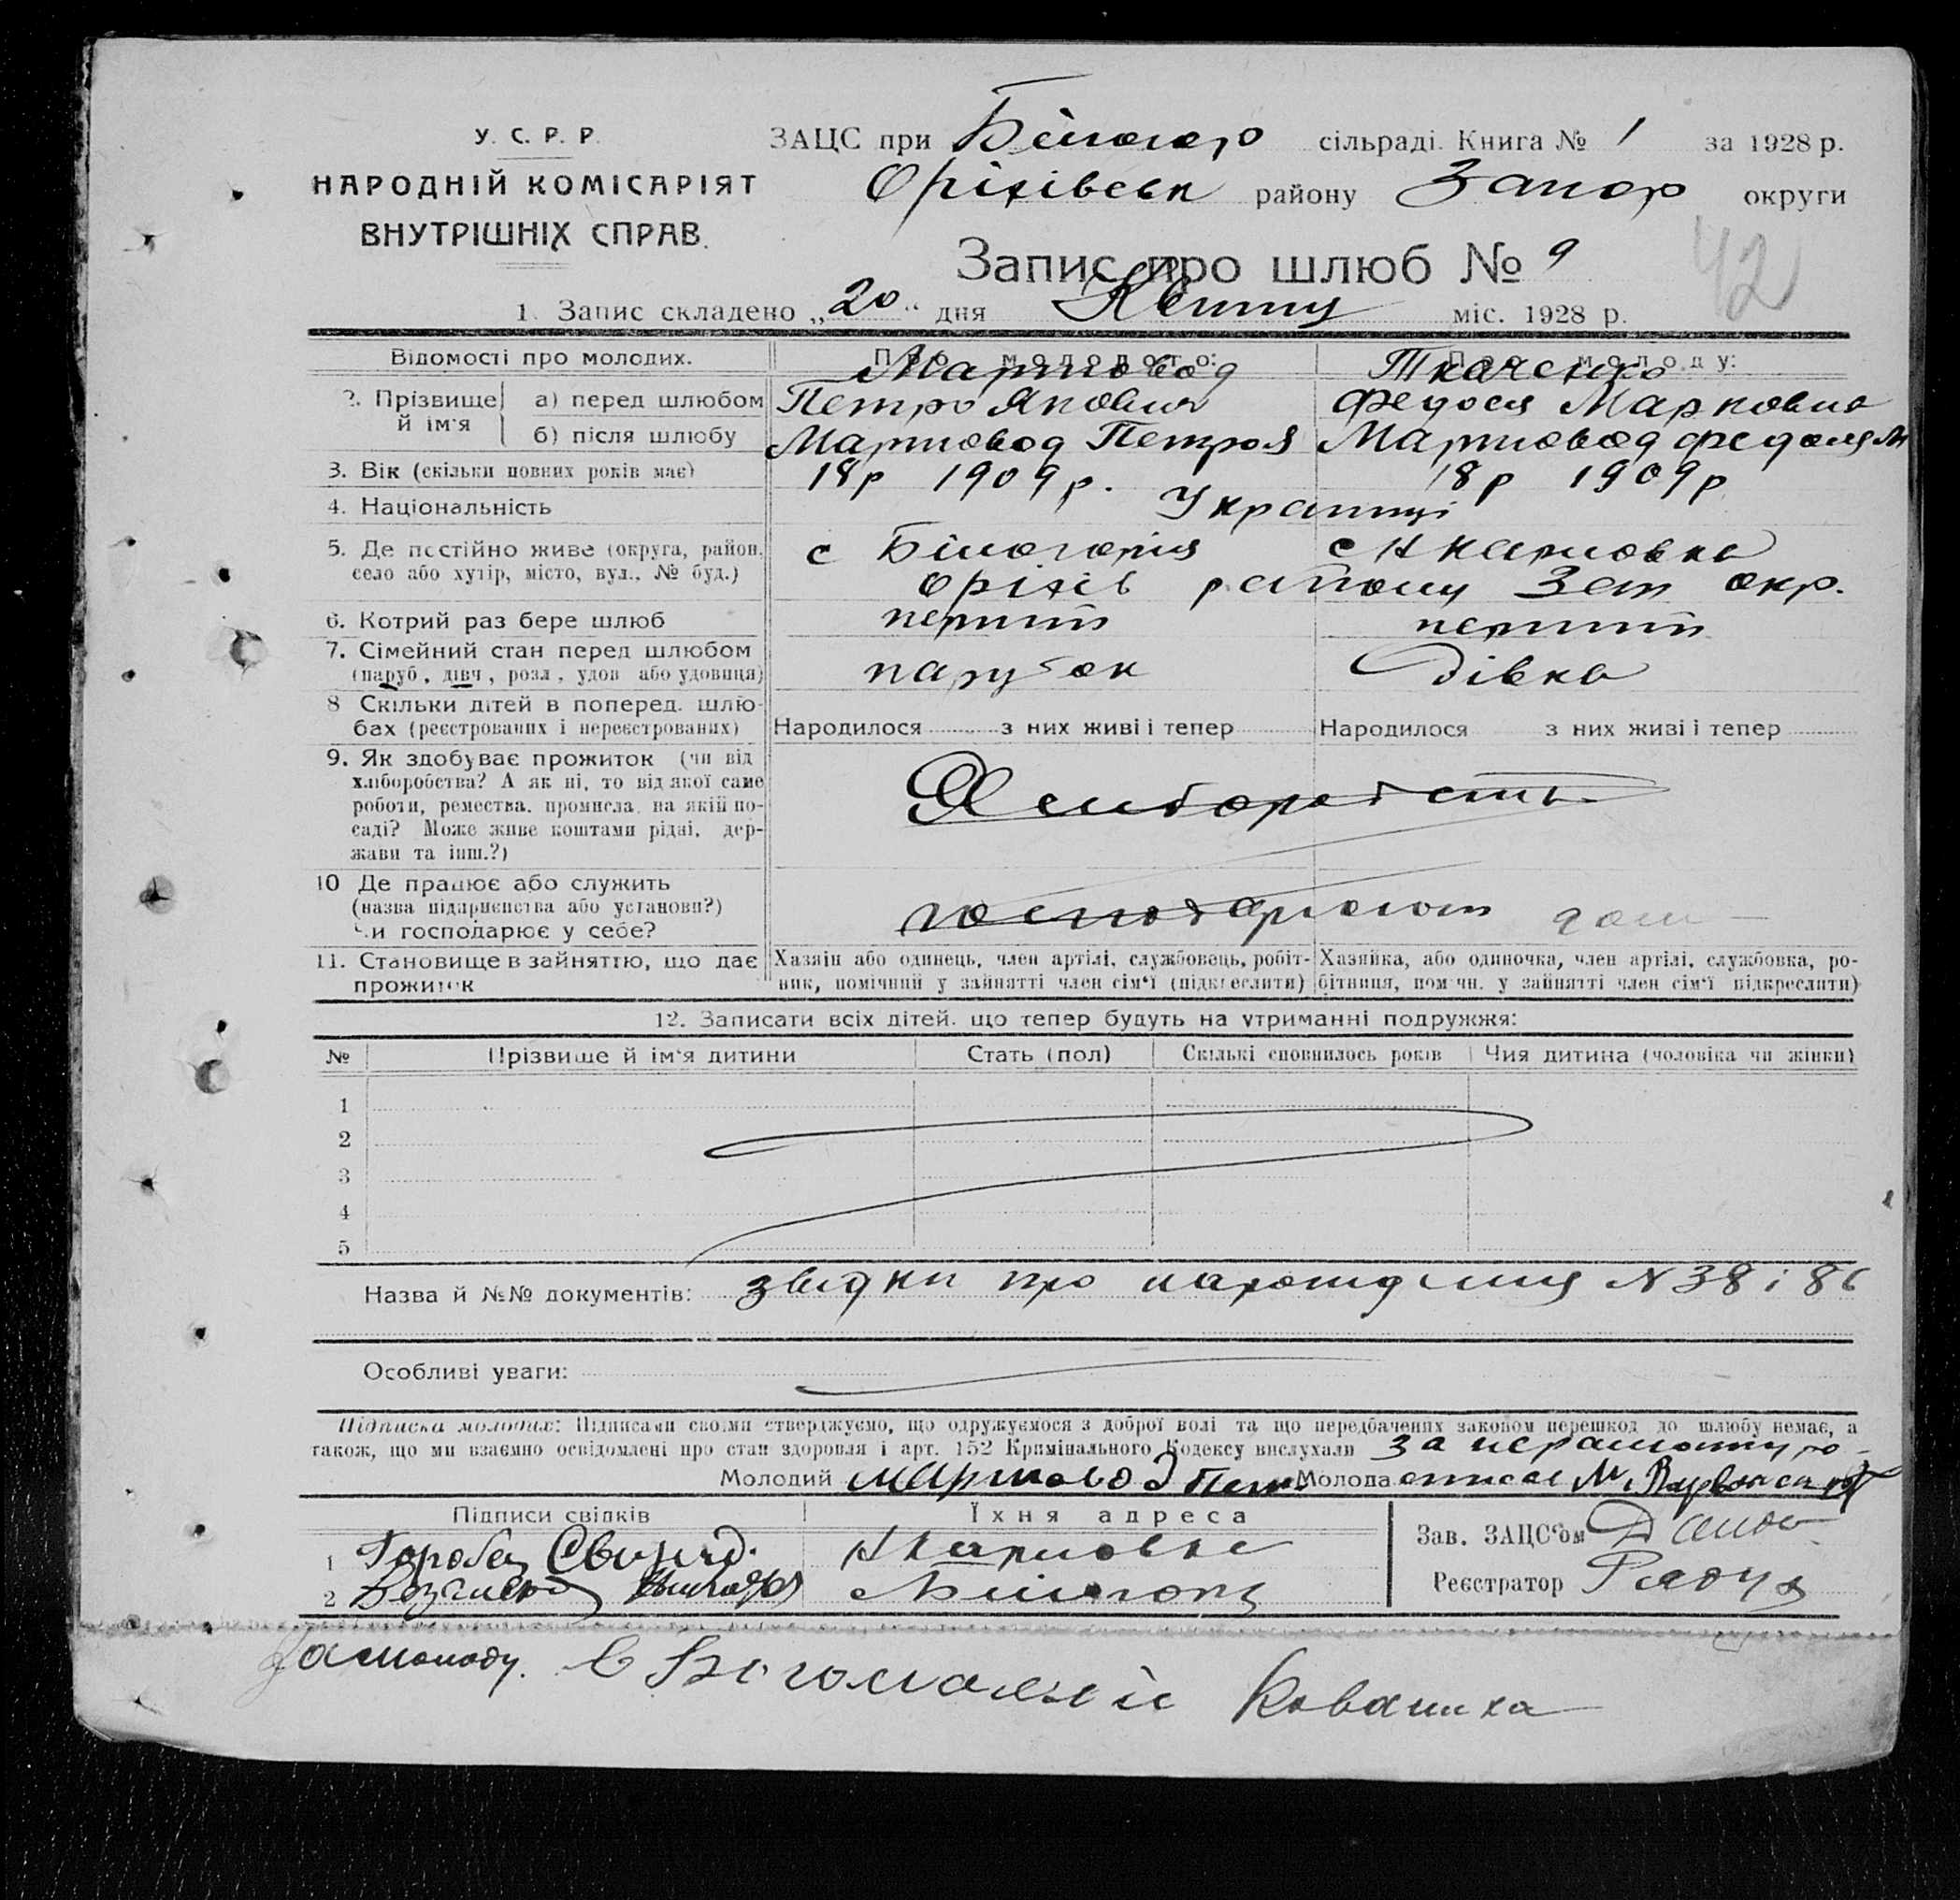 У. С. Р. Р.
НАРОДНІЙ КОМІСАРІЯТ
ВНУТРІШНІХ СПРАВ.
ЗАЦС при Білогор сільраді. Книга № 1 за 1928 р.
Оріхівськ району Запор округи
Запис про шлюб № 9
42
1. Запис складено „20“ дня Квітня міс. 1928 р.
Відомості про молодих. Про молодого: Про молоду:
Мартиовод Ткаченко
2. Прізвище й ім'я а) перед шлюбом Петро Якович Федося Марковна
б) після шлюбу Мартиовод Петро Я Мартиовод Федося М
3. Вік (скільки повних років має) 18р 1909р. 18р 1909р
4. Національність Українці
5. Де постійно живе (округа, район, село або хутір, місто, вул., № буд.) с Білогорія с Н Карловка
Оріхів району Зап окр.
6. Котрий раз бере шлюб перший перший
7. Сімейний стан перед шлюбом (паруб., дівч., розл., удов. або удовиця) парубок дівка
8 Скільки дітей в поперед. шлюбах (реєстрованих і нереєстрованих) Народилося з них живі і тепер Народилося з них живі і тепер
9. Як здобуває прожиток (чи від хліборобства? А як ні, то від якої саме роботи, ремества, промисла, на якій посаді? Може живе коштами рідні, держави та інш.?) Хліборобств
10 Де працює або служить (назва підприємства або установи?) Чи господарює у себе?
11. Становище в зайняттю, що дає прожиток Хазяїн або одинець, член артілі, службовець, робітник, помічний у зайнятті член сім'ї (підкреслити) Хазяйка, або одиночка, член артілі, службовка, робітниця, помічн. у зайнятті член сім'ї підкреслити)
12. Записати всіх дітей, що тепер будуть на утриманні подружжя:
№ Прізвище й ім'я дитини Стать (пол) Скількі сповнилось років Чия дитина (чоловіка чи жінки)
1
2
3
4
5
Назва й №№ документів: звідки про народження N 38 і 86
Особливі уваги:
Підписка молодих: Підписами своїми стверджуємо, що одружуємося з доброї волі та що передбачених законом перешкод до шлюбу немає, а
також, що ми взаємно освідомлені про стан здоровля і арт. 152 Крімінального Кодексу вислухали за неграмотную
Молодий Мартиовод Пет. Молода
Підписи свідків Їхня адреса Зав. ЗАЦС'ом
1 Горобец Н Карловка
2 Білогор Реєстратор